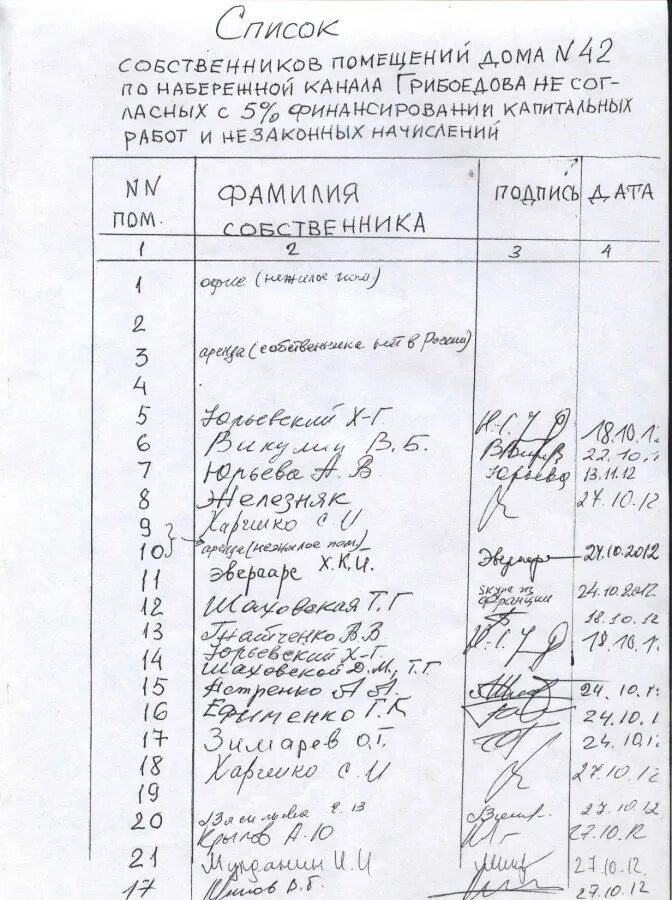 Список
СОБСТВЕННИКОВ ПОМЕЩЕНИЙ ДОМА N 42
ПО НАБЕРЕЖНОЙ КАНАЛА ГРИБОЕДОВА НЕ СОГ-
ЛАСНЫХ С 5% ФИНАНСИРОВАНИИ КАПИТАЛЬНЫХ
РАБОТ И НЕЗАКОННЫХ НАЧИСЛЕНИЙ
NN ПОМ. ФАМИЛИЯ СОБСТВЕННИКА ПОДПИСЬ ДАТА
1 2 3 4
1 офис (нежилое пом)
2
3 аренда (собственника нет в России)
4
5 Юрьевский Х-Г. 18.10.1
6 Викулин В.Б. 22.10.1
7 Юрьева А.В Юрьева 13.11.12
8 Железняк 27.10.12
9 Харченко С.И
10 аренда (нежилое пом.)
11 Эвераарс Х.К.Й. 24.10.2012
12 Шаховская Т.Г skype из Франции 24.10.2012
13 Гнатченко В.В 18.10.12
14 Юрьевский Х-Г. 18.10.1
Шаховской Д.М., Т.Г.
15 Астренко А А. 24.10.1
16 Ефименко Г.К 24.10.1
17 Зимарев О.Г. 24.10.12
18 Харченко С.И 27.10.12
19
20 27.10.12
Крылов А.Ю 27.10.12
21 И.И 27.10.12
17 В.Б. 27.10.12